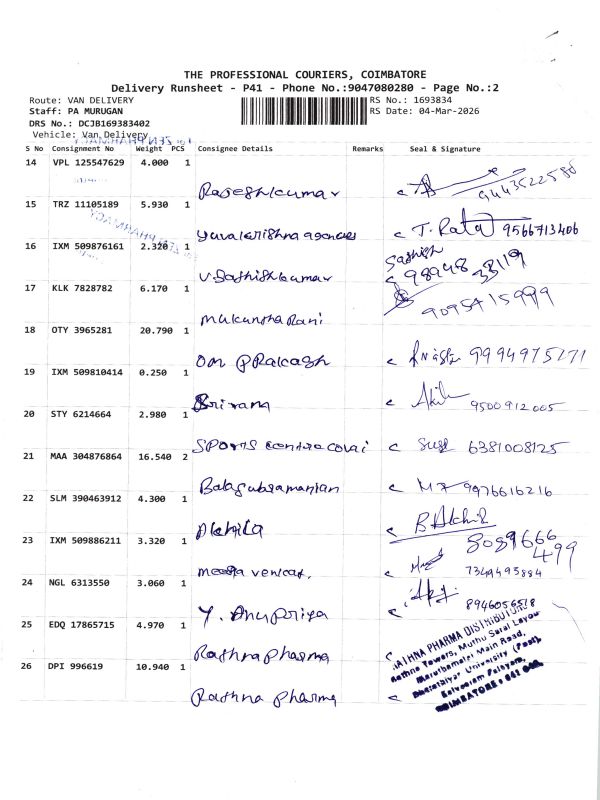 THE PROFESSIONAL COURIERS, COIMBATORE
Delivery Runsheet - P41 - Phone No.:9047080280 - Page No.:2
Route: VAN DELIVERY RS No.: 1693834
Staff: PA MURUGAN RS Date: 04-Mar-2026
DRS No.: DCJB169383402
Vehicle: Van Delivery
S No Consignment No Weight PCS Consignee Details Remarks Seal & Signature
14 VPL 125547629 4.000 1
Rajeshkumar 9443522580
15 TRZ 11105189 5.930 1
yuvakrishna agencies 9566713406
16 IXM 509876161 2.320 1
V. Sathishkumar Sathish 98948 38119
17 KLK 7828782 6.170 1
Mukuntha Rani 9095415999
18 OTY 3965281 20.790 1
Om PRakash 9994975171
19 IXM 509810414 0.250 1
Srirang Akil 9500912005
20 STY 6214664 2.980 1
SPORTS centre covai 6381008125
21 MAA 304876864 16.540 2
Balasubramanian 9976616216
22 SLM 390463912 4.300 1
Akhila B. Akhil 8089666499
23 IXM 509886211 3.320 1
meega venkat. 7349495884
24 NGL 6313550 3.060 1
Y. Anupriya 8946056518
25 EDQ 17865715 4.970 1
Rathna pharma
26 DPI 996619 10.940 1
Rathna pharma
RATHNA PHARMA DISTRIBUTORS
Rathna Towers, Muthu Saral Layout
Maruthamalai Main Road,
Bharathiyar University (Post),
Kalveeram Palayam,
COIMBATORE - 641 046.